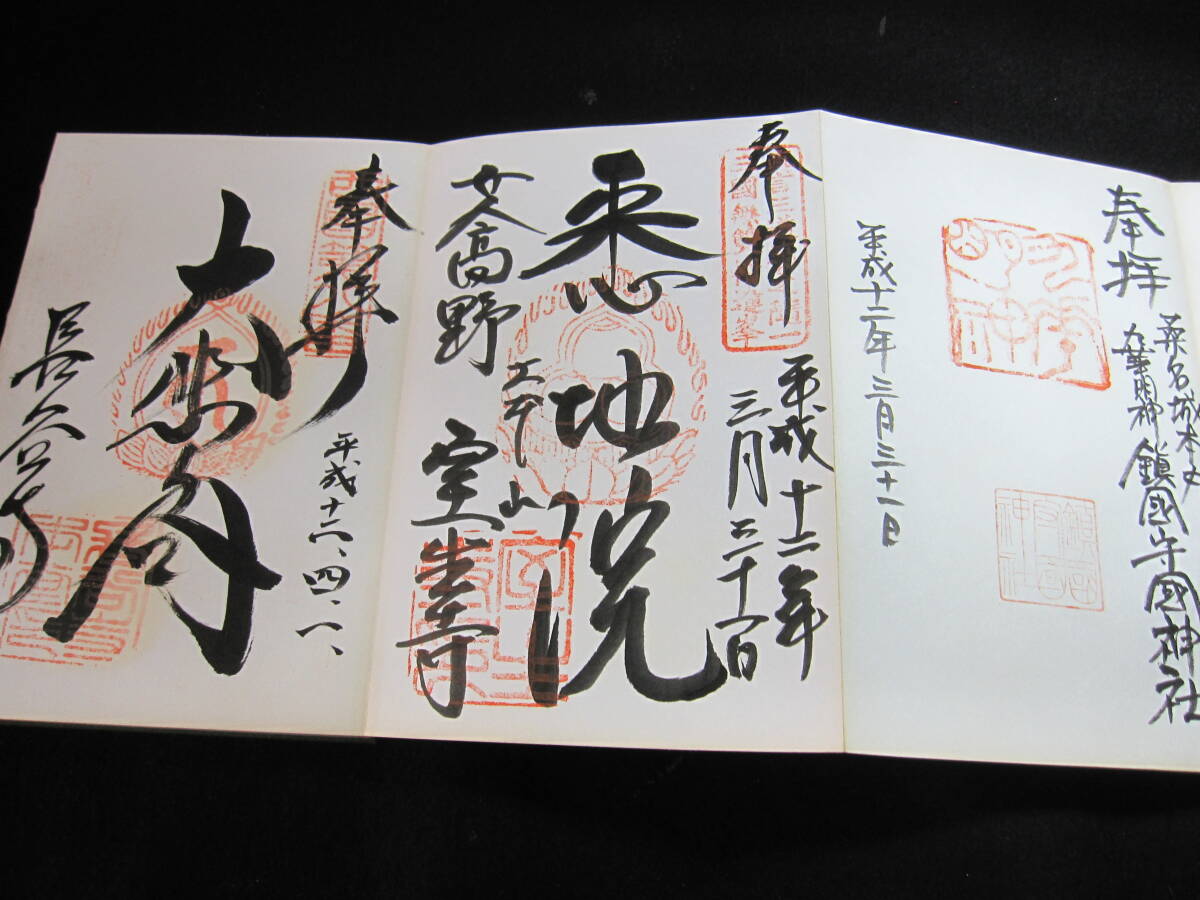 奉拝
桑名城本丸
九華明神
鎮國守國神社
平成十二年三月三十一日
奉拝
平成十二年
三月二十
悉地院
女人高野
宀一山
室生寺
奉拝
平成十六、四、一、
大悲閣
長谷寺